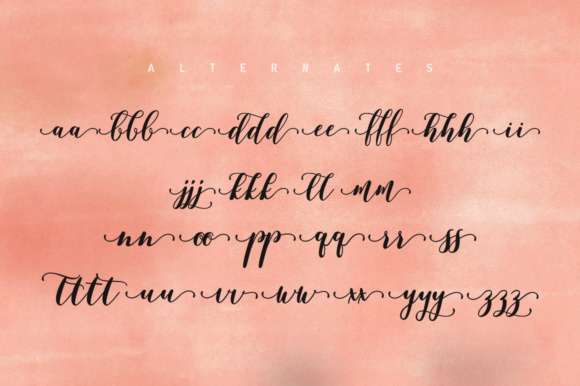 ALTERNATES
aa bbb cc ddd ee fff hhh ii
jjj kkk ll mm
nn oo pp qq rr ss
tttt uu vv ww xx yyy zzz